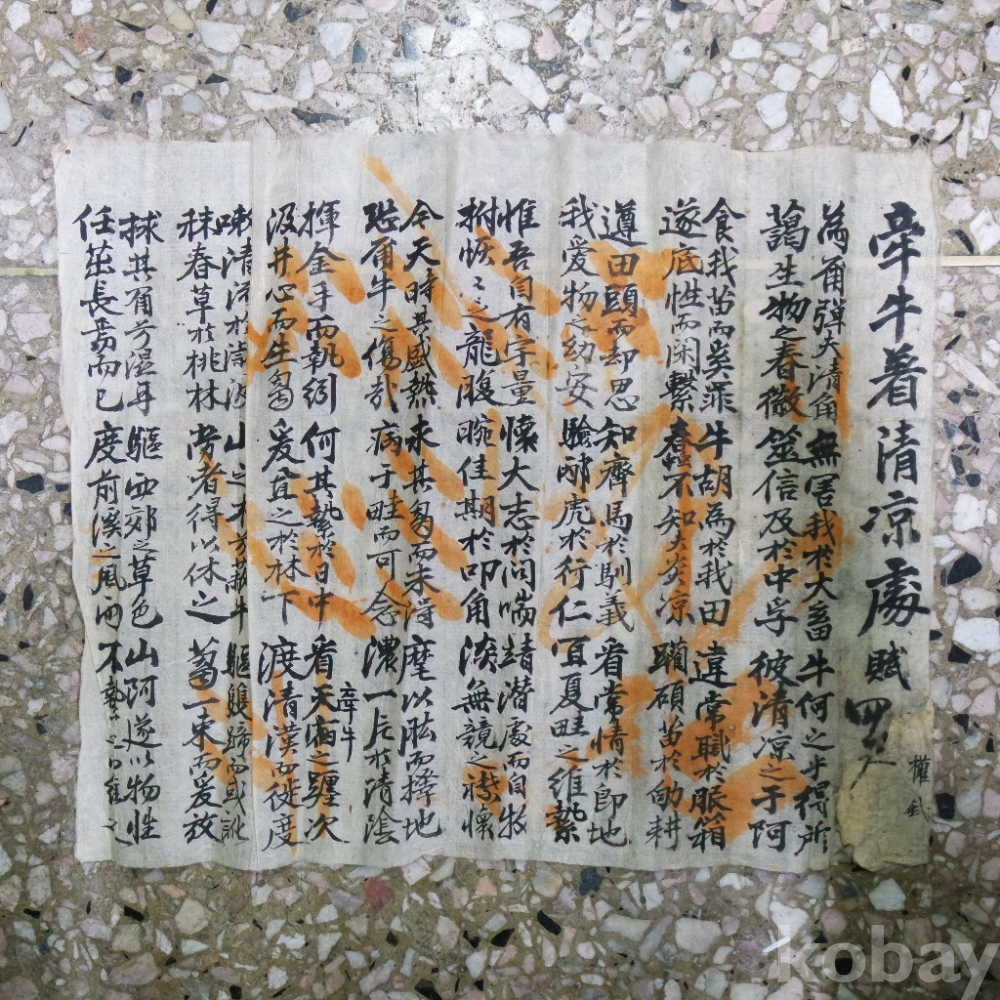 牽牛着清凉處賦
權
為爾弹夫清角無害我於大畜牛何之乎得所
藹生物之春微筮信及於中孚彼清凉之于阿
食我苗而奚罪牛胡為於我田違常職於服箱
遂底性而閑繫春不知大炎凉躓碩苗於助耕
遵田頭而却思知齊馬於馴義省常情於即地
我爱物之幼安驗酹虎於行仁宜夏畦之維縶
惟吾自有宇量懷大志於问喘靖潜處而自牧
拊恢之之龍腹畹佳期於叩角淡無競之襟懷
今天時其盛熱求其芻而未得麾以肱而擇地
恐爾牛之傷哉病于畦而可念濃一庄於清陰
揮金手而執紖何其縶於日中看天病之躔次
牽牛
汲井心而生芻爰宜之於林下渡清漢而徙度
清於山之木方牛驅雙蹄而或訛
秣春草於桃林勞者得以休之芻一束而爰放
捄其角兮濕耳驅西郊之草色山阿遂以物性
任茁長焉而已度前溪之風雨不之
kobay